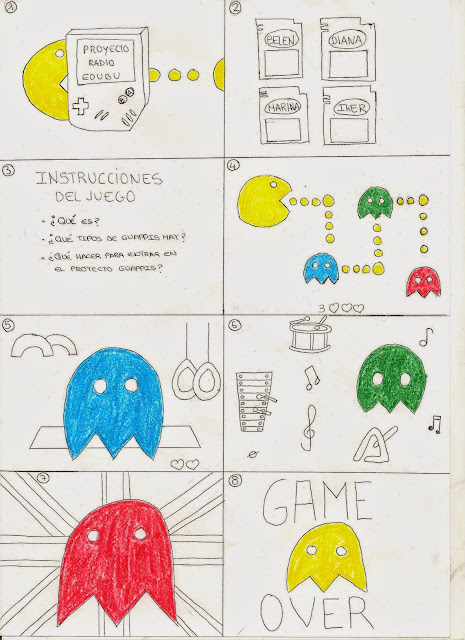 1
PROYECTO
RADIO
EDUBU
2
BELEN
DIANA
MARINA
IKER
3
INSTRUCCIONES
DEL JUEGO
- ¿QUÉ ES?
- ¿QUÉ TIPOS DE GUAPPIS HAY?
- ¿QUÉ HACER PARA ENTRAR EN
EL PROYECTO GUAPPIS?
4
3
5
6
7
8
GAME
OVER